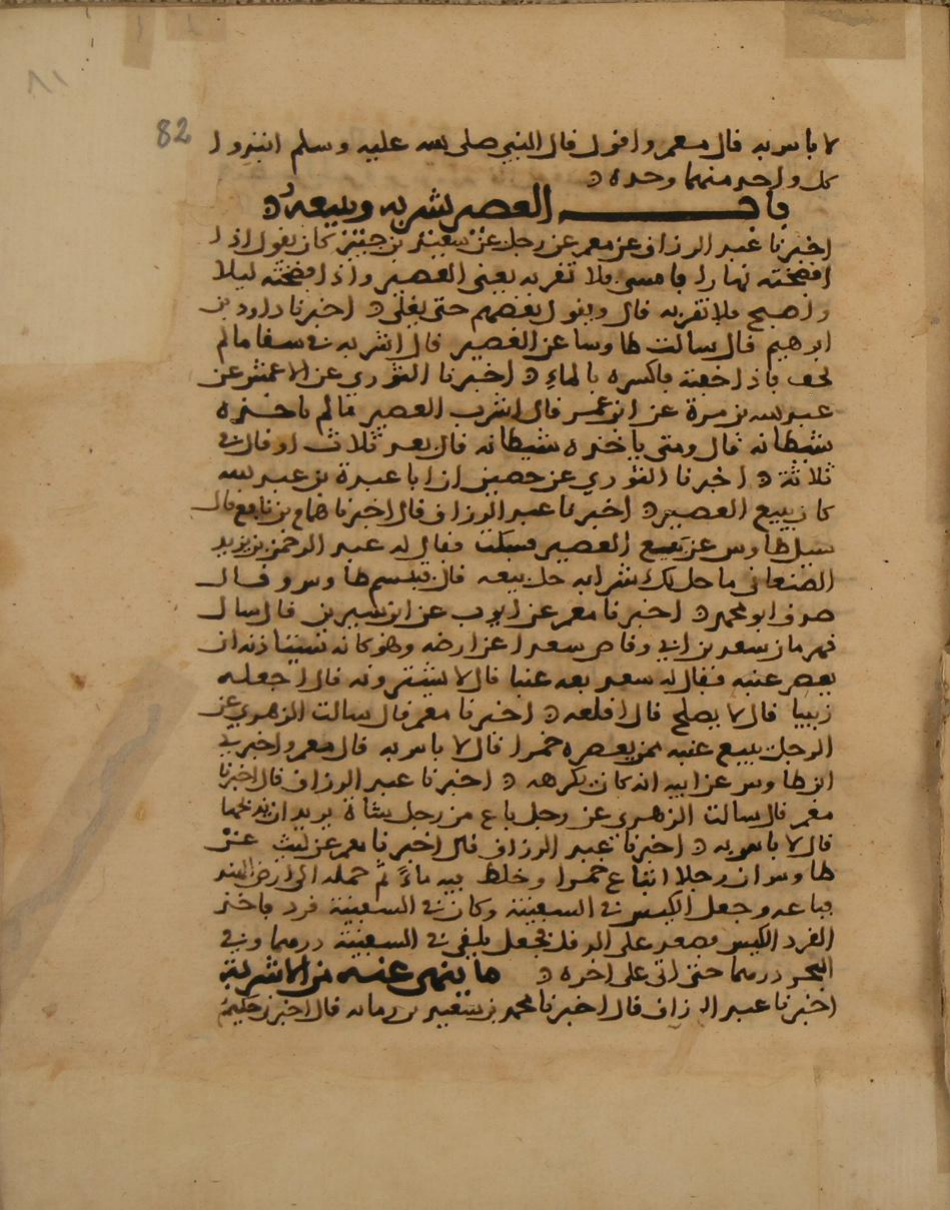 82
لا باس به قال معمر واقول قال النبي صلى الله عليه وسلم انتبذوا
كل واحد منهما وحده
باب العصير شربه وبيعه
اخبرنا عبد الرزاق عن معمر عن رجل عن سعيد بن جبير كان يقول اذا
افضخته نهارا فامسى فلا تقربه يعني العصير واذا فضخته ليلا
واصبح فلا تقربه قال ويقول بعضهم حتى يغلي اخبرنا داود بن
ابرهيم قال سالت طاوسا عن العصير قال اشربه في سقا ما لم
تخف فاذا خفته فاكسره بالماء اخبرنا الثوري عن الاعمش عن
عبد الله بن مرة عن ابن عمر قال اشرب العصير ما لم ياخذه
شيطانه قال ومتى ياخذه شيطانه قال بعد ثلاث او قال في
ثلاثة اخبرنا الثوري عن حصين ان ابا عبيدة بن عبد الله
كان يبيع العصير اخبرنا عبد الرزاق قال اخبرنا همام بن نافع قال
سيل طاوس عن بيع العصير فسكت فقال له عبد الرحمن بن يزيد
الصنعاني ما حل لك شرابه حل بيعه قال فتبسم طاوس وقال
صدق ابو محمد اخبرنا معمر عن ايوب عن ابن سيرين قال سال
قهرمان سعد بن ابي وقاص سعدا عن ارضه وهو كانه يستاذنه ان
يعصر عنبه فقال له سعد بعه عنبا قال لا يشترونه قال اجعله
زبيبا قال لا يصلح قال اقلعه اخبرنا معمر قال سالت الزهري عن
الرجل يبيع عنبه ممن يعصره خمرا قال لا باس به قال معمر واخبرني
ابن طاوس عن ابيه انه كان يكرهه اخبرنا عبد الرزاق قال اخبرنا
معمر قال سالت الزهري عن رجل باع من رجل شاة يريد ان يذبحها
قال لا باس به اخبرنا عبد الرزاق قال اخبرنا معمر عن ليث عن
طاوس ان رجلا ابتاع خمرا وخلط فيه ماء ثم حمله الى ارض الهند
فباعه وجعل الكيس في السفينة وكان في السفينة قرد فاخذ
القرد الكيس فصعد على الدقل فجعل يلقي في السفينة درهما وفي
البحر درهما حتى اتى على اخره ما ينهى عنه من الاشربة
اخبرنا عبد الرزاق قال اخبرنا محمد بن مسلم